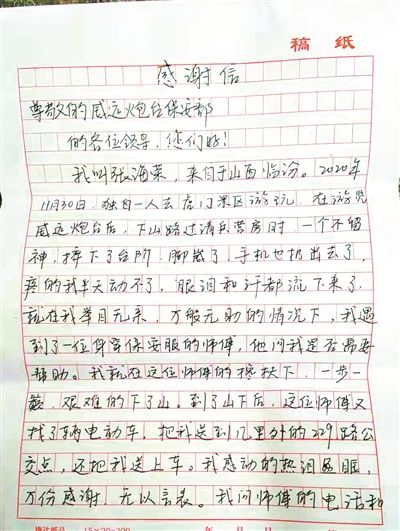 稿纸
感谢信
尊敬的威远炮台保安部
的各位领导，您们好！
我叫张海荣，来自于山西临汾。2020年
11月30日，独自一人去虎门景区游玩，在游览
威远炮台后，下山路过清兵营房时，一个不留
神，摔下了台阶，脚崴了，手机也扔出去了，
疼的我半天动不了，眼泪和汗都流下来了，
就在我举目无亲，万般无助的情况下，我遇
到了一位身穿保安服的师傅，他问我是否需要
帮助。我就在这位师傅的搀扶下，一步一
，艰难的下了山。到了山下后，这位师傅又
找了辆电动车，把我送到几里外的229路公
交点，还把我送上车。我感动的热泪盈眶，
万份感谢，无以言表。我问师傅的电话和
15×20=300 年 月 日